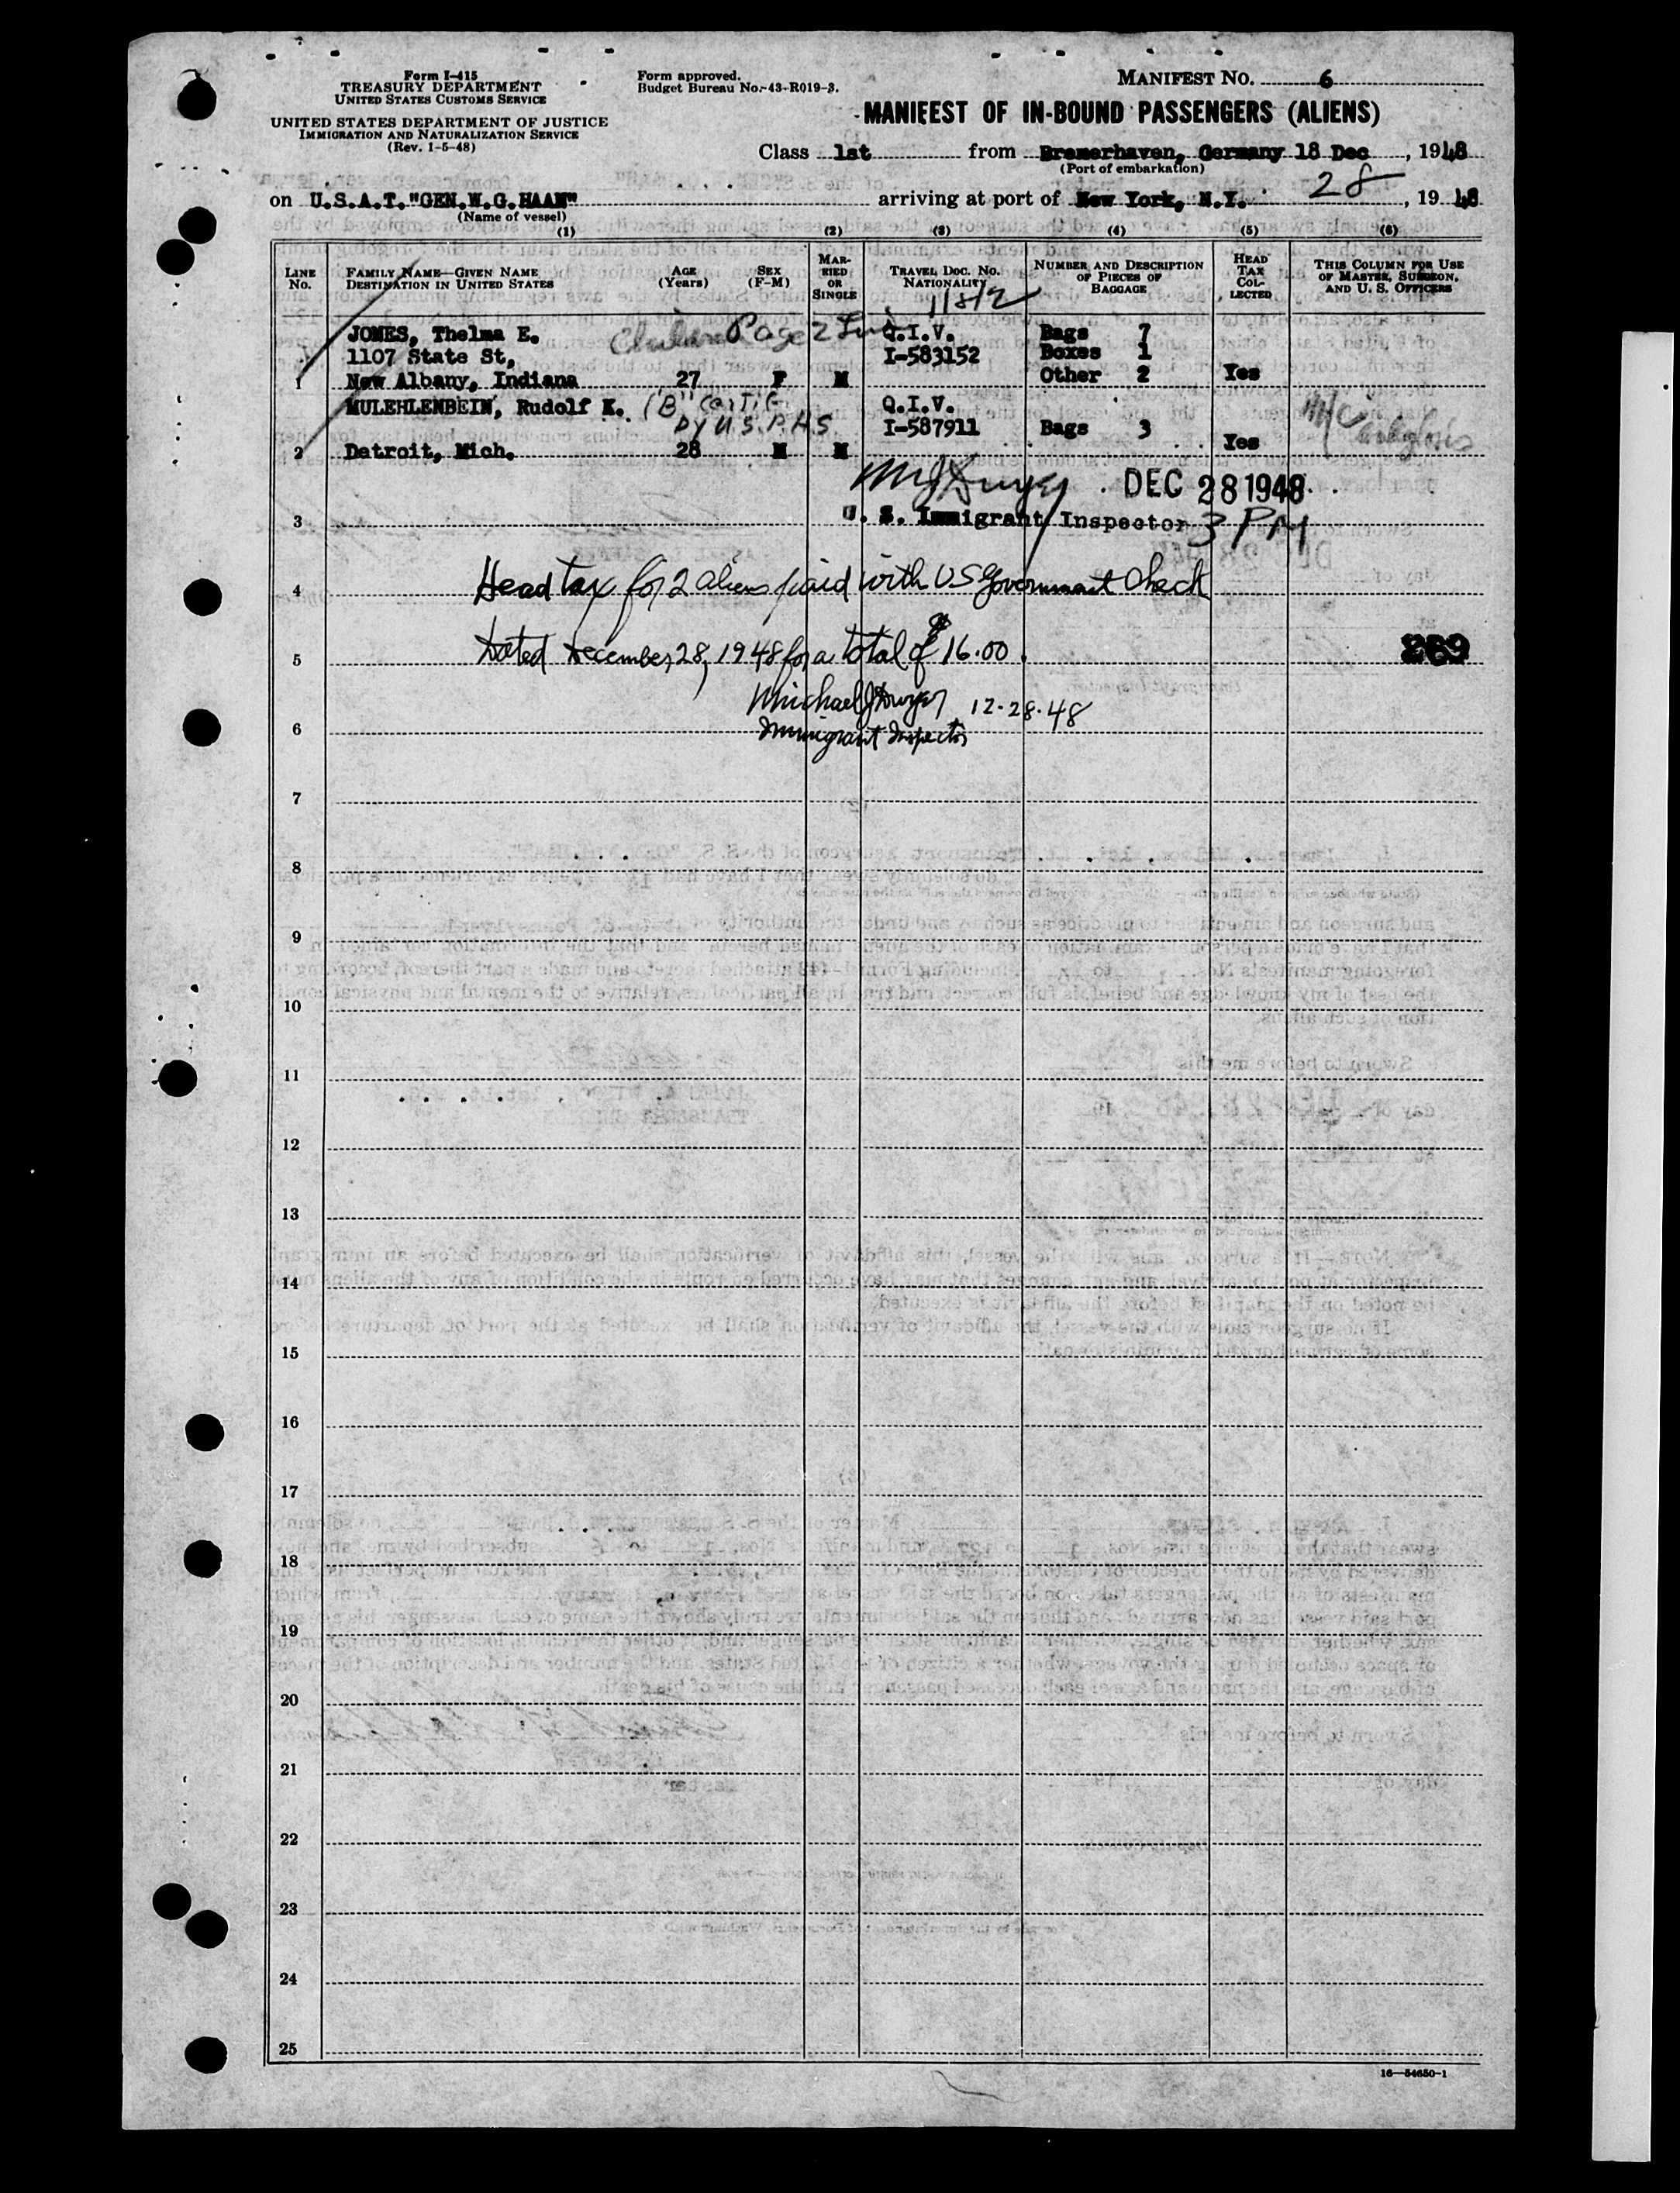 Form I-415
TREASURY DEPARTMENT
UNITED STATES CUSTOMS SERVICE
UNITED STATES DEPARTMENT OF JUSTICE
IMMIGRATION AND NATURALIZATION SERVICE
(Rev. 1-5-48)
Form approved.
Budget Bureau No. 43-R019-3.
MANIFEST NO. 6
MANIFEST OF IN-BOUND PASSENGERS (ALIENS)
Class 1st from Bremerhaven, Germany 18 Dec, 1948
(Port of embarkation)
on U.S.A.T. "GEN.W.G.HAAN" arriving at port of New York, N.Y. 28, 1948
(Name of vessel)
(1) (2) (3) (4) (5) (6)
LINE No.
FAMILY NAME—GIVEN NAME
DESTINATION IN UNITED STATES
AGE (Years)
SEX (F-M)
MARRIED OR SINGLE
TRAVEL DOC. NO.
NATIONALITY
NUMBER AND DESCRIPTION OF PIECES OF BAGGAGE
HEAD TAX COLLECTED
THIS COLUMN FOR USE OF MASTER, SURGEON, AND U. S. OFFICERS
JONES, Thelma E. Page 2 Q.I.V. Bags 7
1107 State St, I-583152 Boxes 1
1 New Albany, Indiana 27 F M Other 2 Yes
MULEHLENBEIN, Rudolf K. "B" Q.I.V.
by U.S.P.H.S. I-587911 Bags 3
2 Detroit, Mich. 28 M M Yes
DEC 28 1948
3 U. S. Immigrant Inspector 3 PM
4 Head tax for 2 aliens paid with US Government Check
5 Dated December 28, 1948 for a total of $16.00. 269
Michael J Dwyer 12-28-48
6 Immigrant Inspector
7
8
9
10
11
12
13
14
15
16
17
18
19
20
21
22
23
24
25
16—54650-1